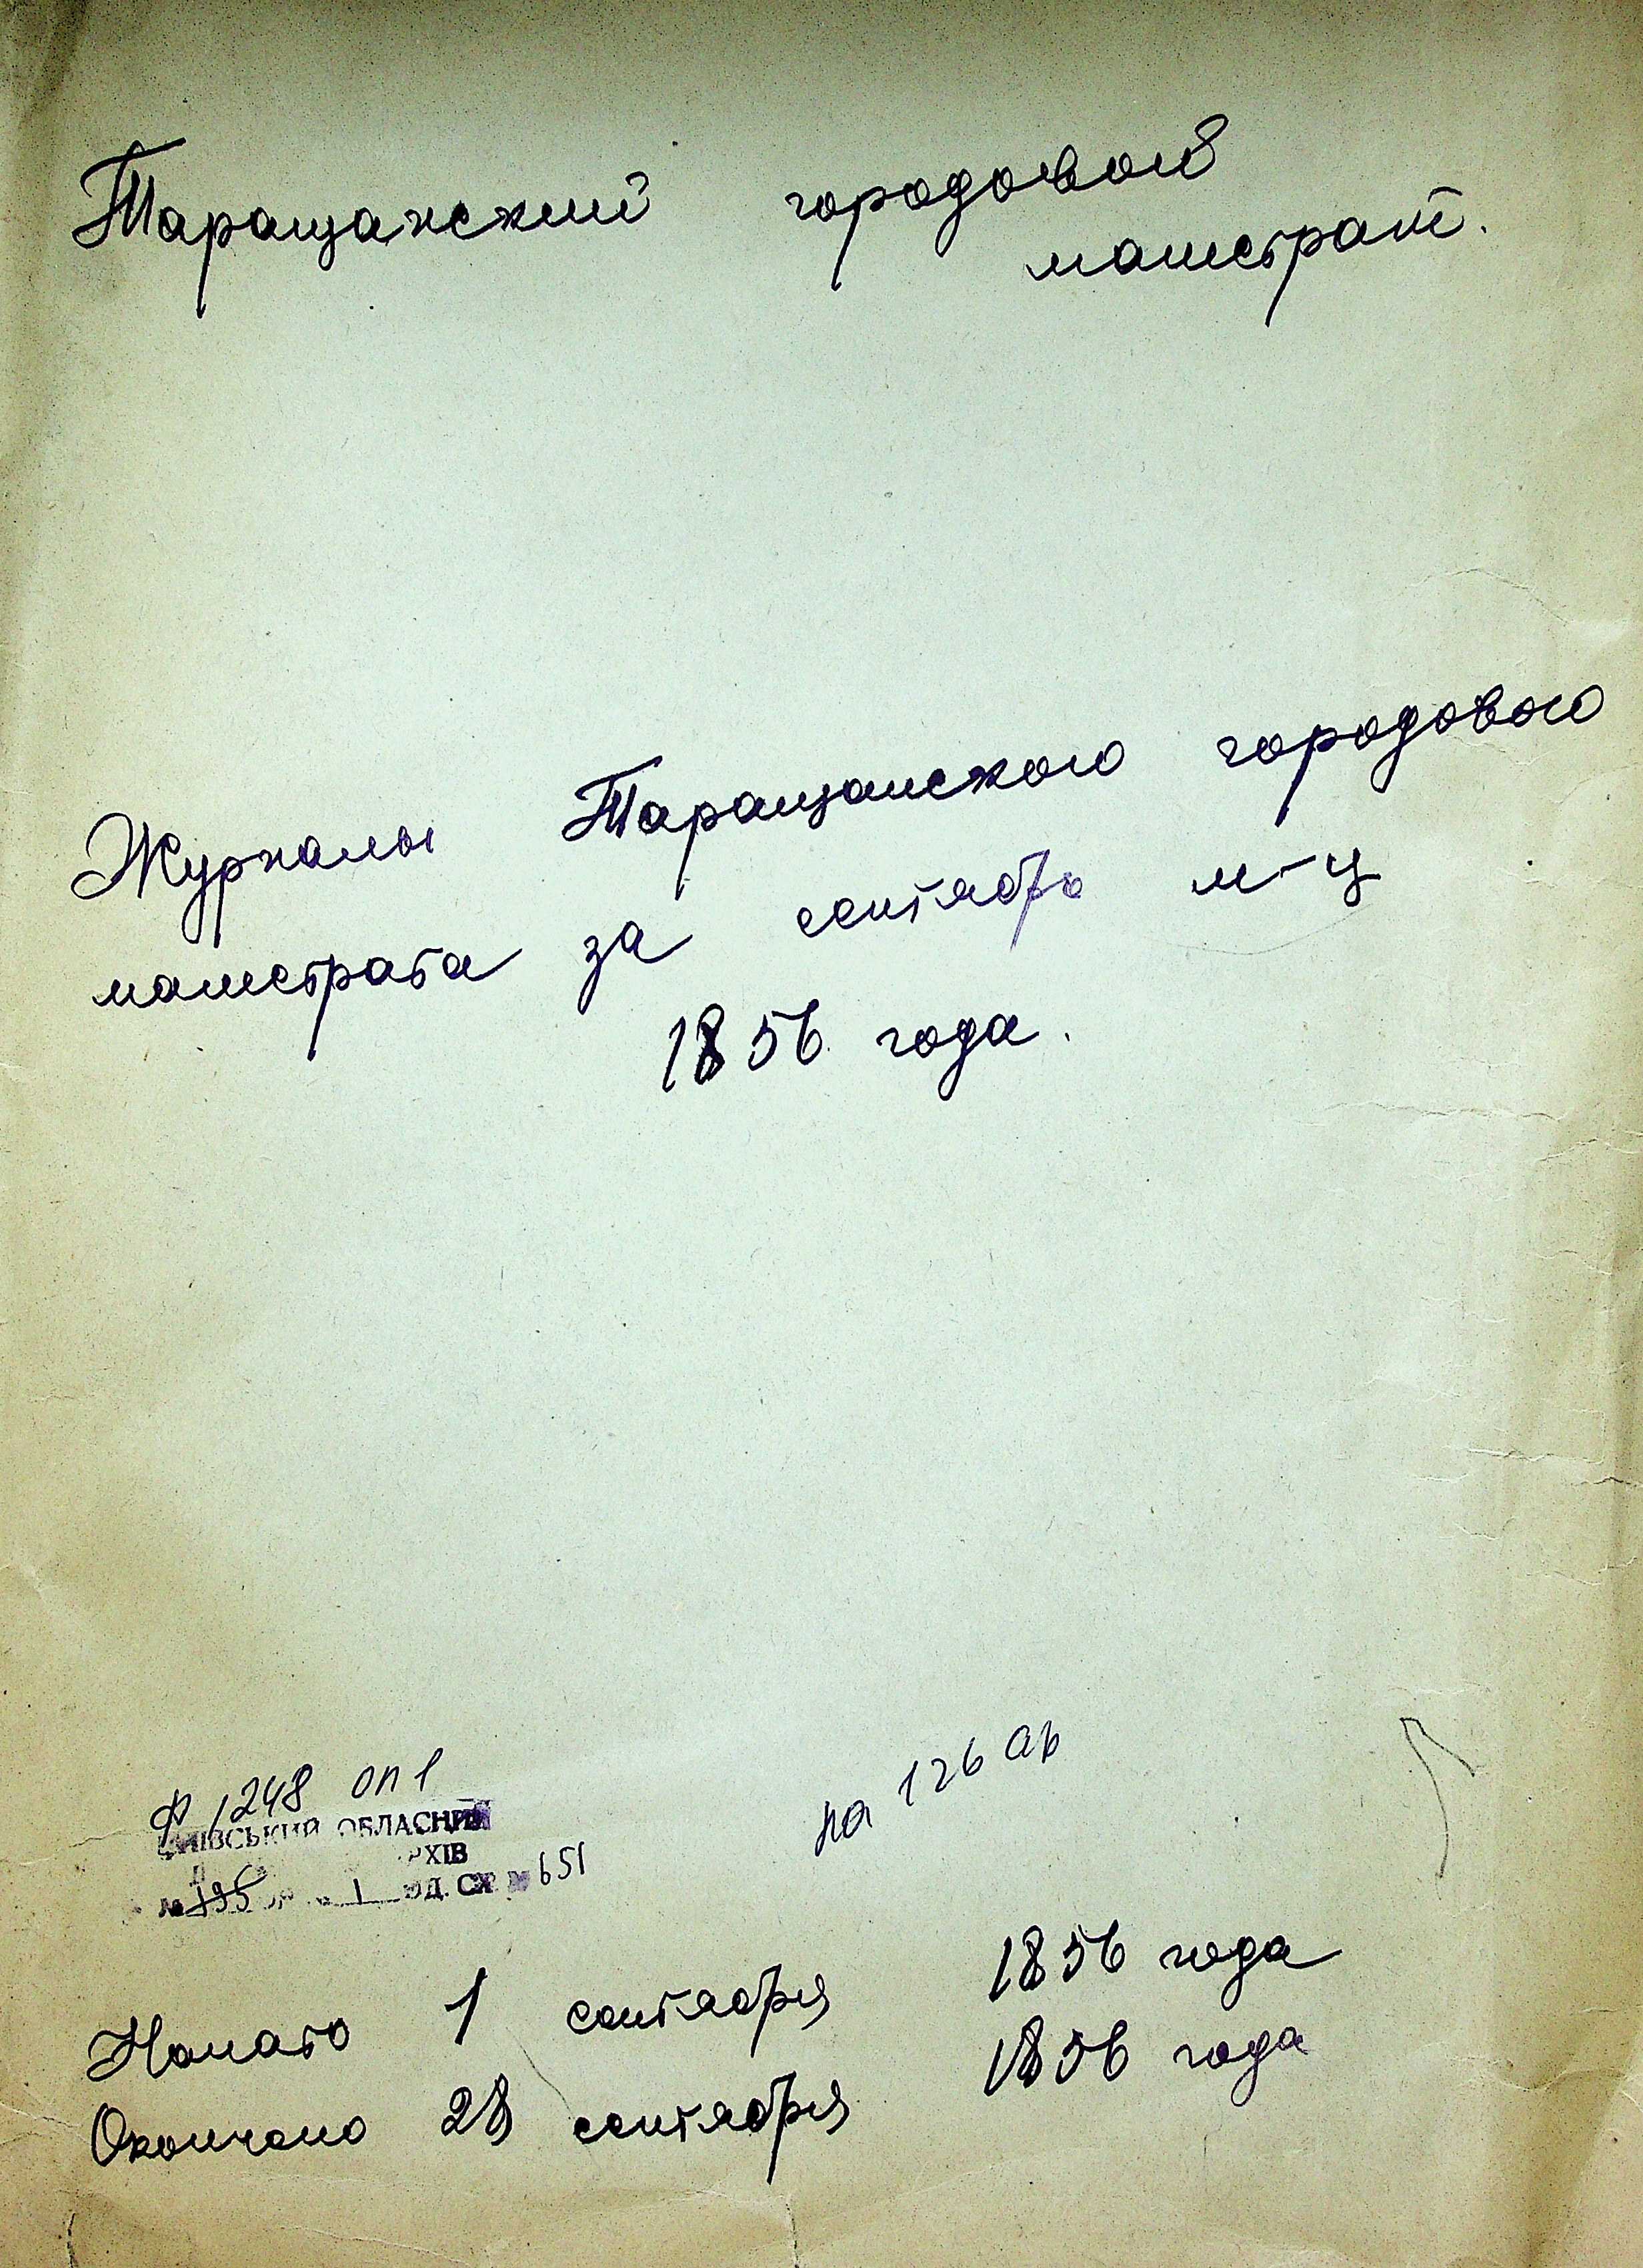 Таращанский городовой
магистрат.
Журналы Таращанского городового
магистрата за сентябрь м-ц
1856 года.
Ф 1248 оп 1
КИЇВСЬКИЙ ОБЛАСНИЙ
АРХІВ
№ 195 1 ОД. СХ № 651
на 126 ар
Начато 1 сентября 1856 года
Окончено 28 сентября 1856 года